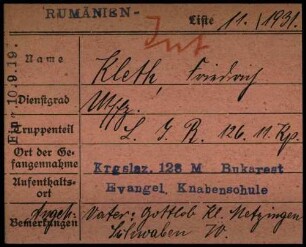 RUMÄNIEN-
Liste 11./1931.
Int
Ein: 10.9.19.
Name Kleth, Friedrich
Dienstgrad Utffz.
Truppenteil L. J. R. 126. 11. Kp.
Ort der Ge-
fangennahme
Krgslaz. 128 M Bukarest
Aufenthalts-
ort
Evangel. Knabenschule
Bemerkungen Vater: Gottlob Kl. Metzingen
Schwaben